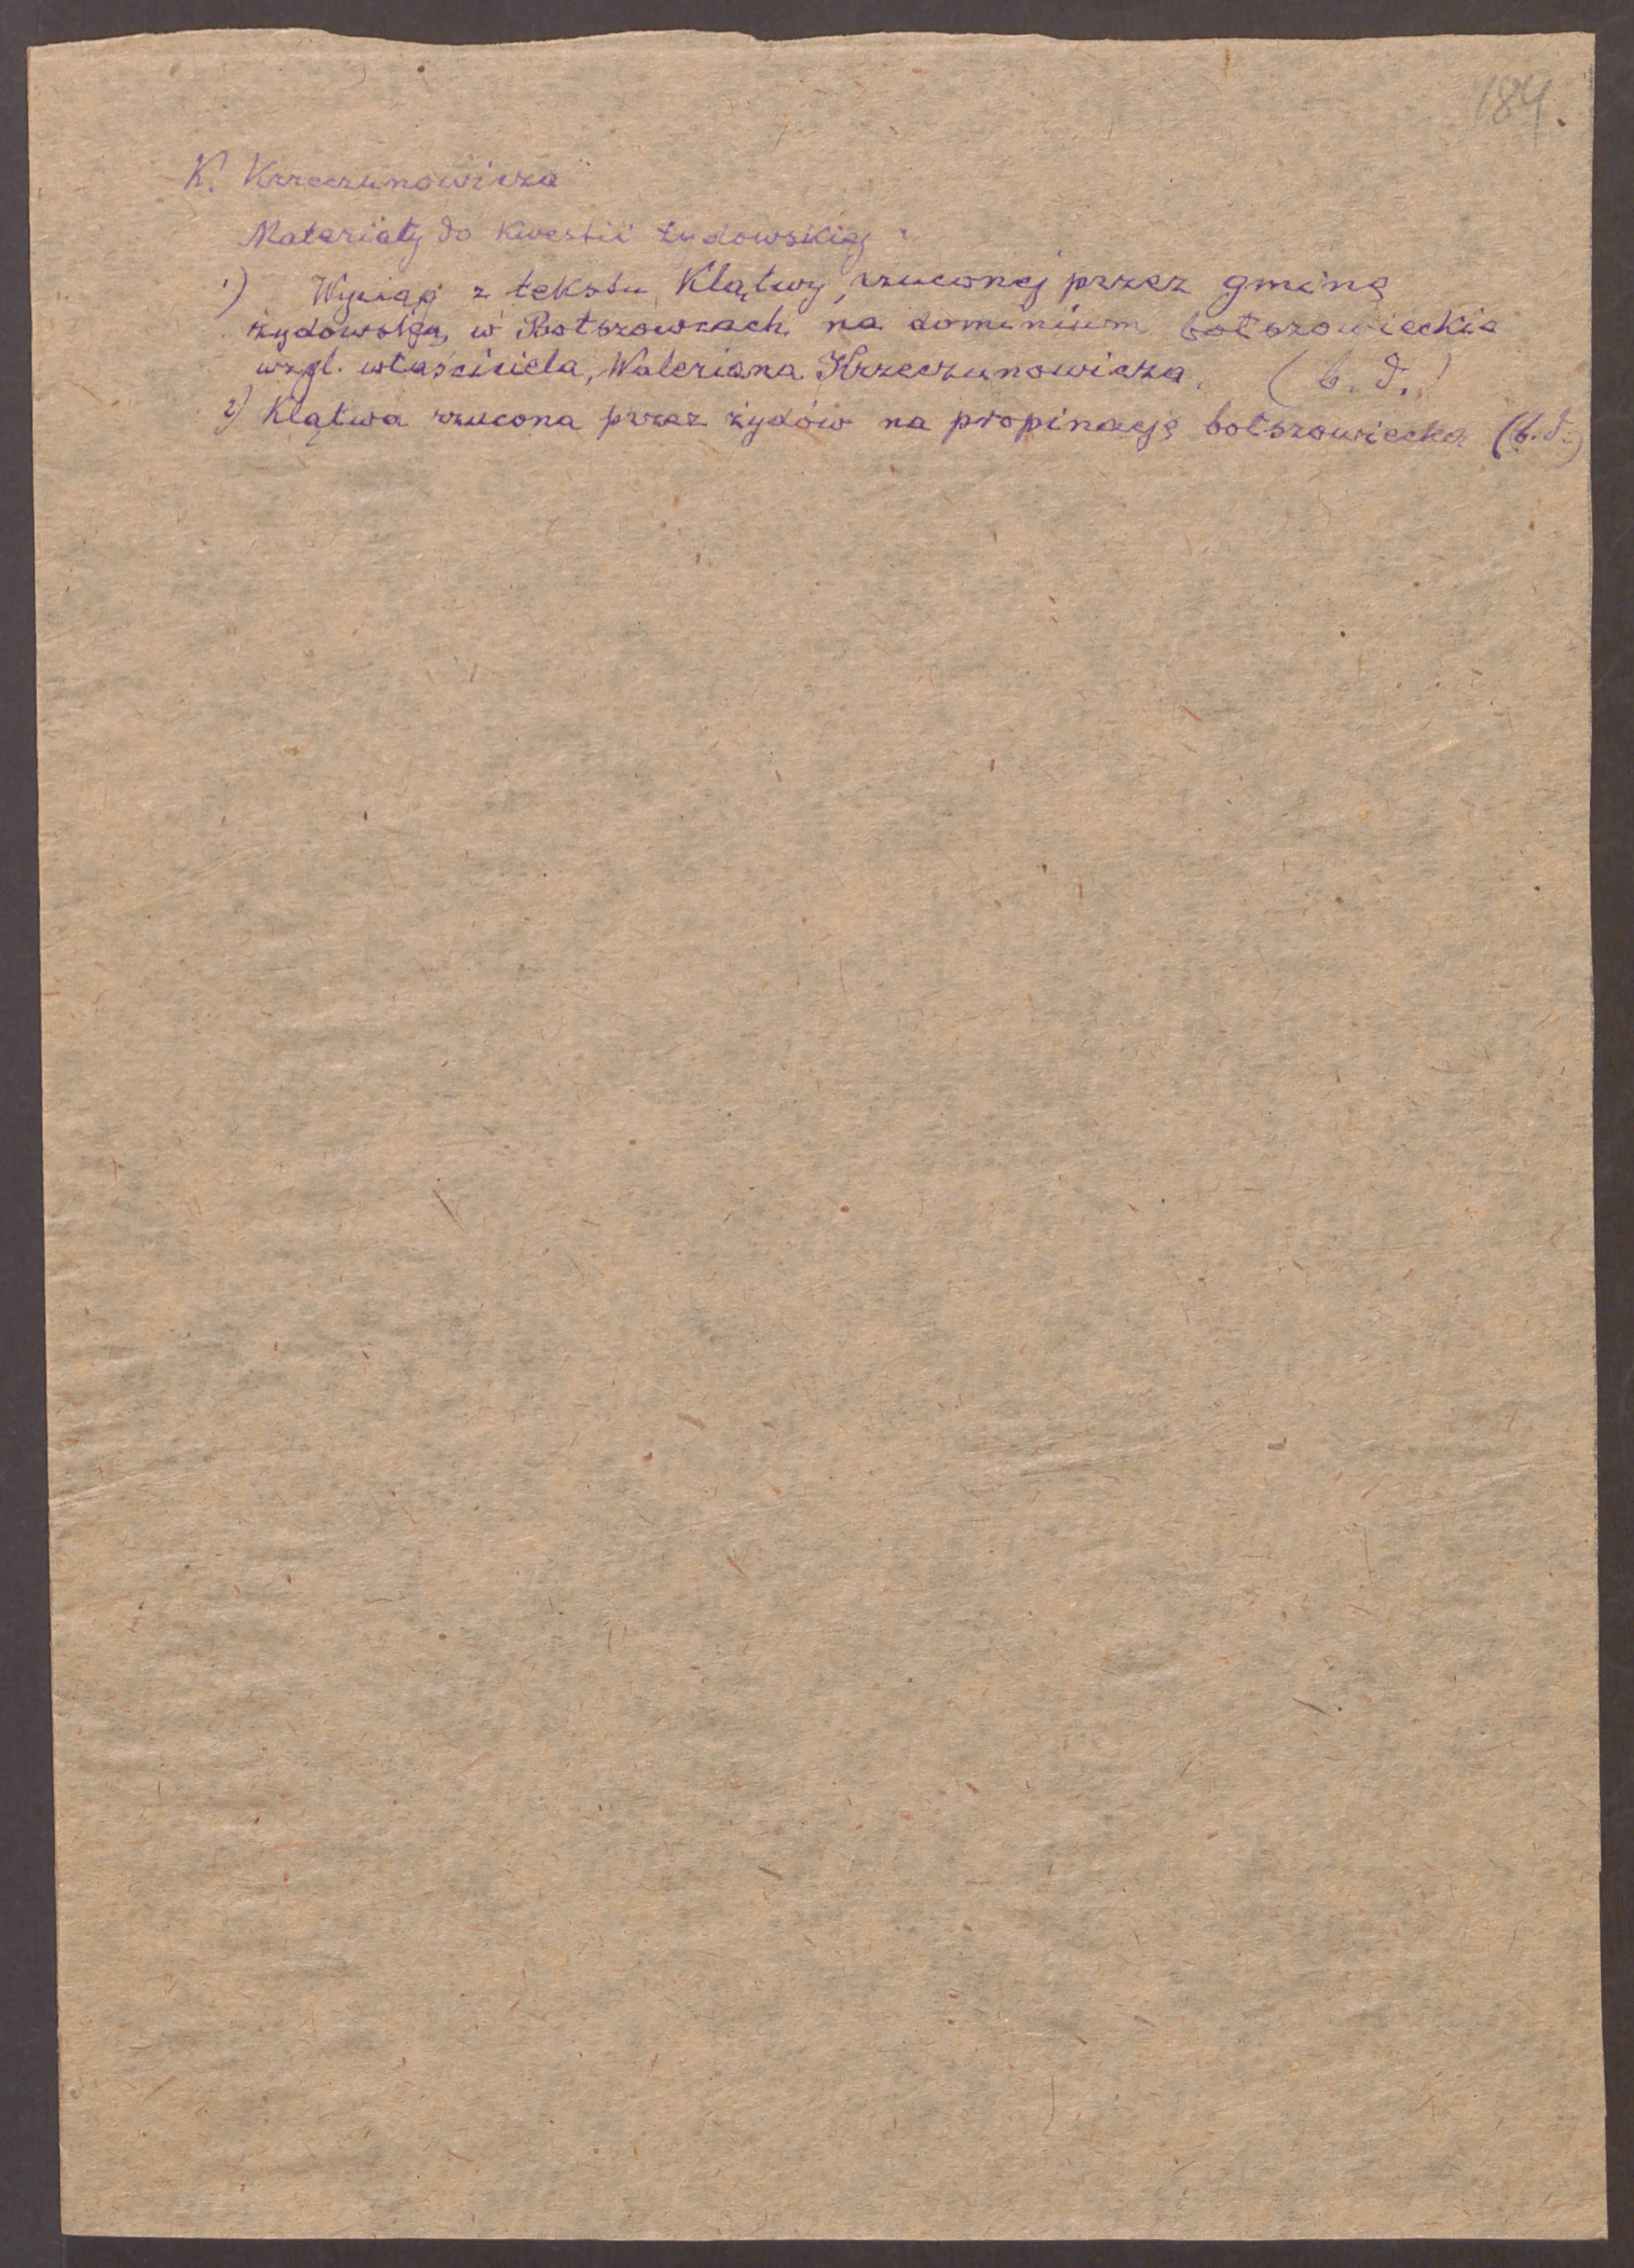 184.
K. Krzeczunowicza
Materiały do kwestii żydowskiej:
1) Wyciąg z tekstu klątwy, rzuconej przez gminę
żydowską w Bołszowcach na dominium bołszowieckie
wzgl. właściciela, Waleriana Krzeczunowicza. (b. d.)
2) Klątwa rzucona przez żydów na propinację bołszowiecką (b. d.)